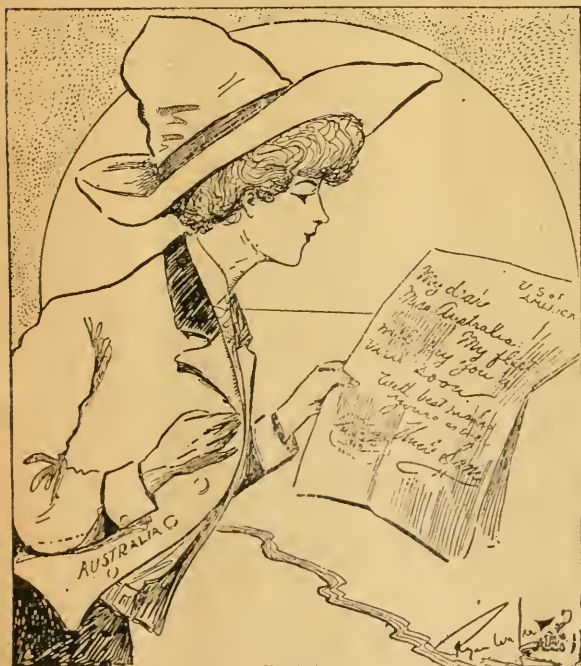 U S of
AMERICA
My dear
Miss Australia:
My fleet
will pay you
visit soon
With best regards
Yours as ever
Uncle Sam
AUSTRALIA
Ryan Walker